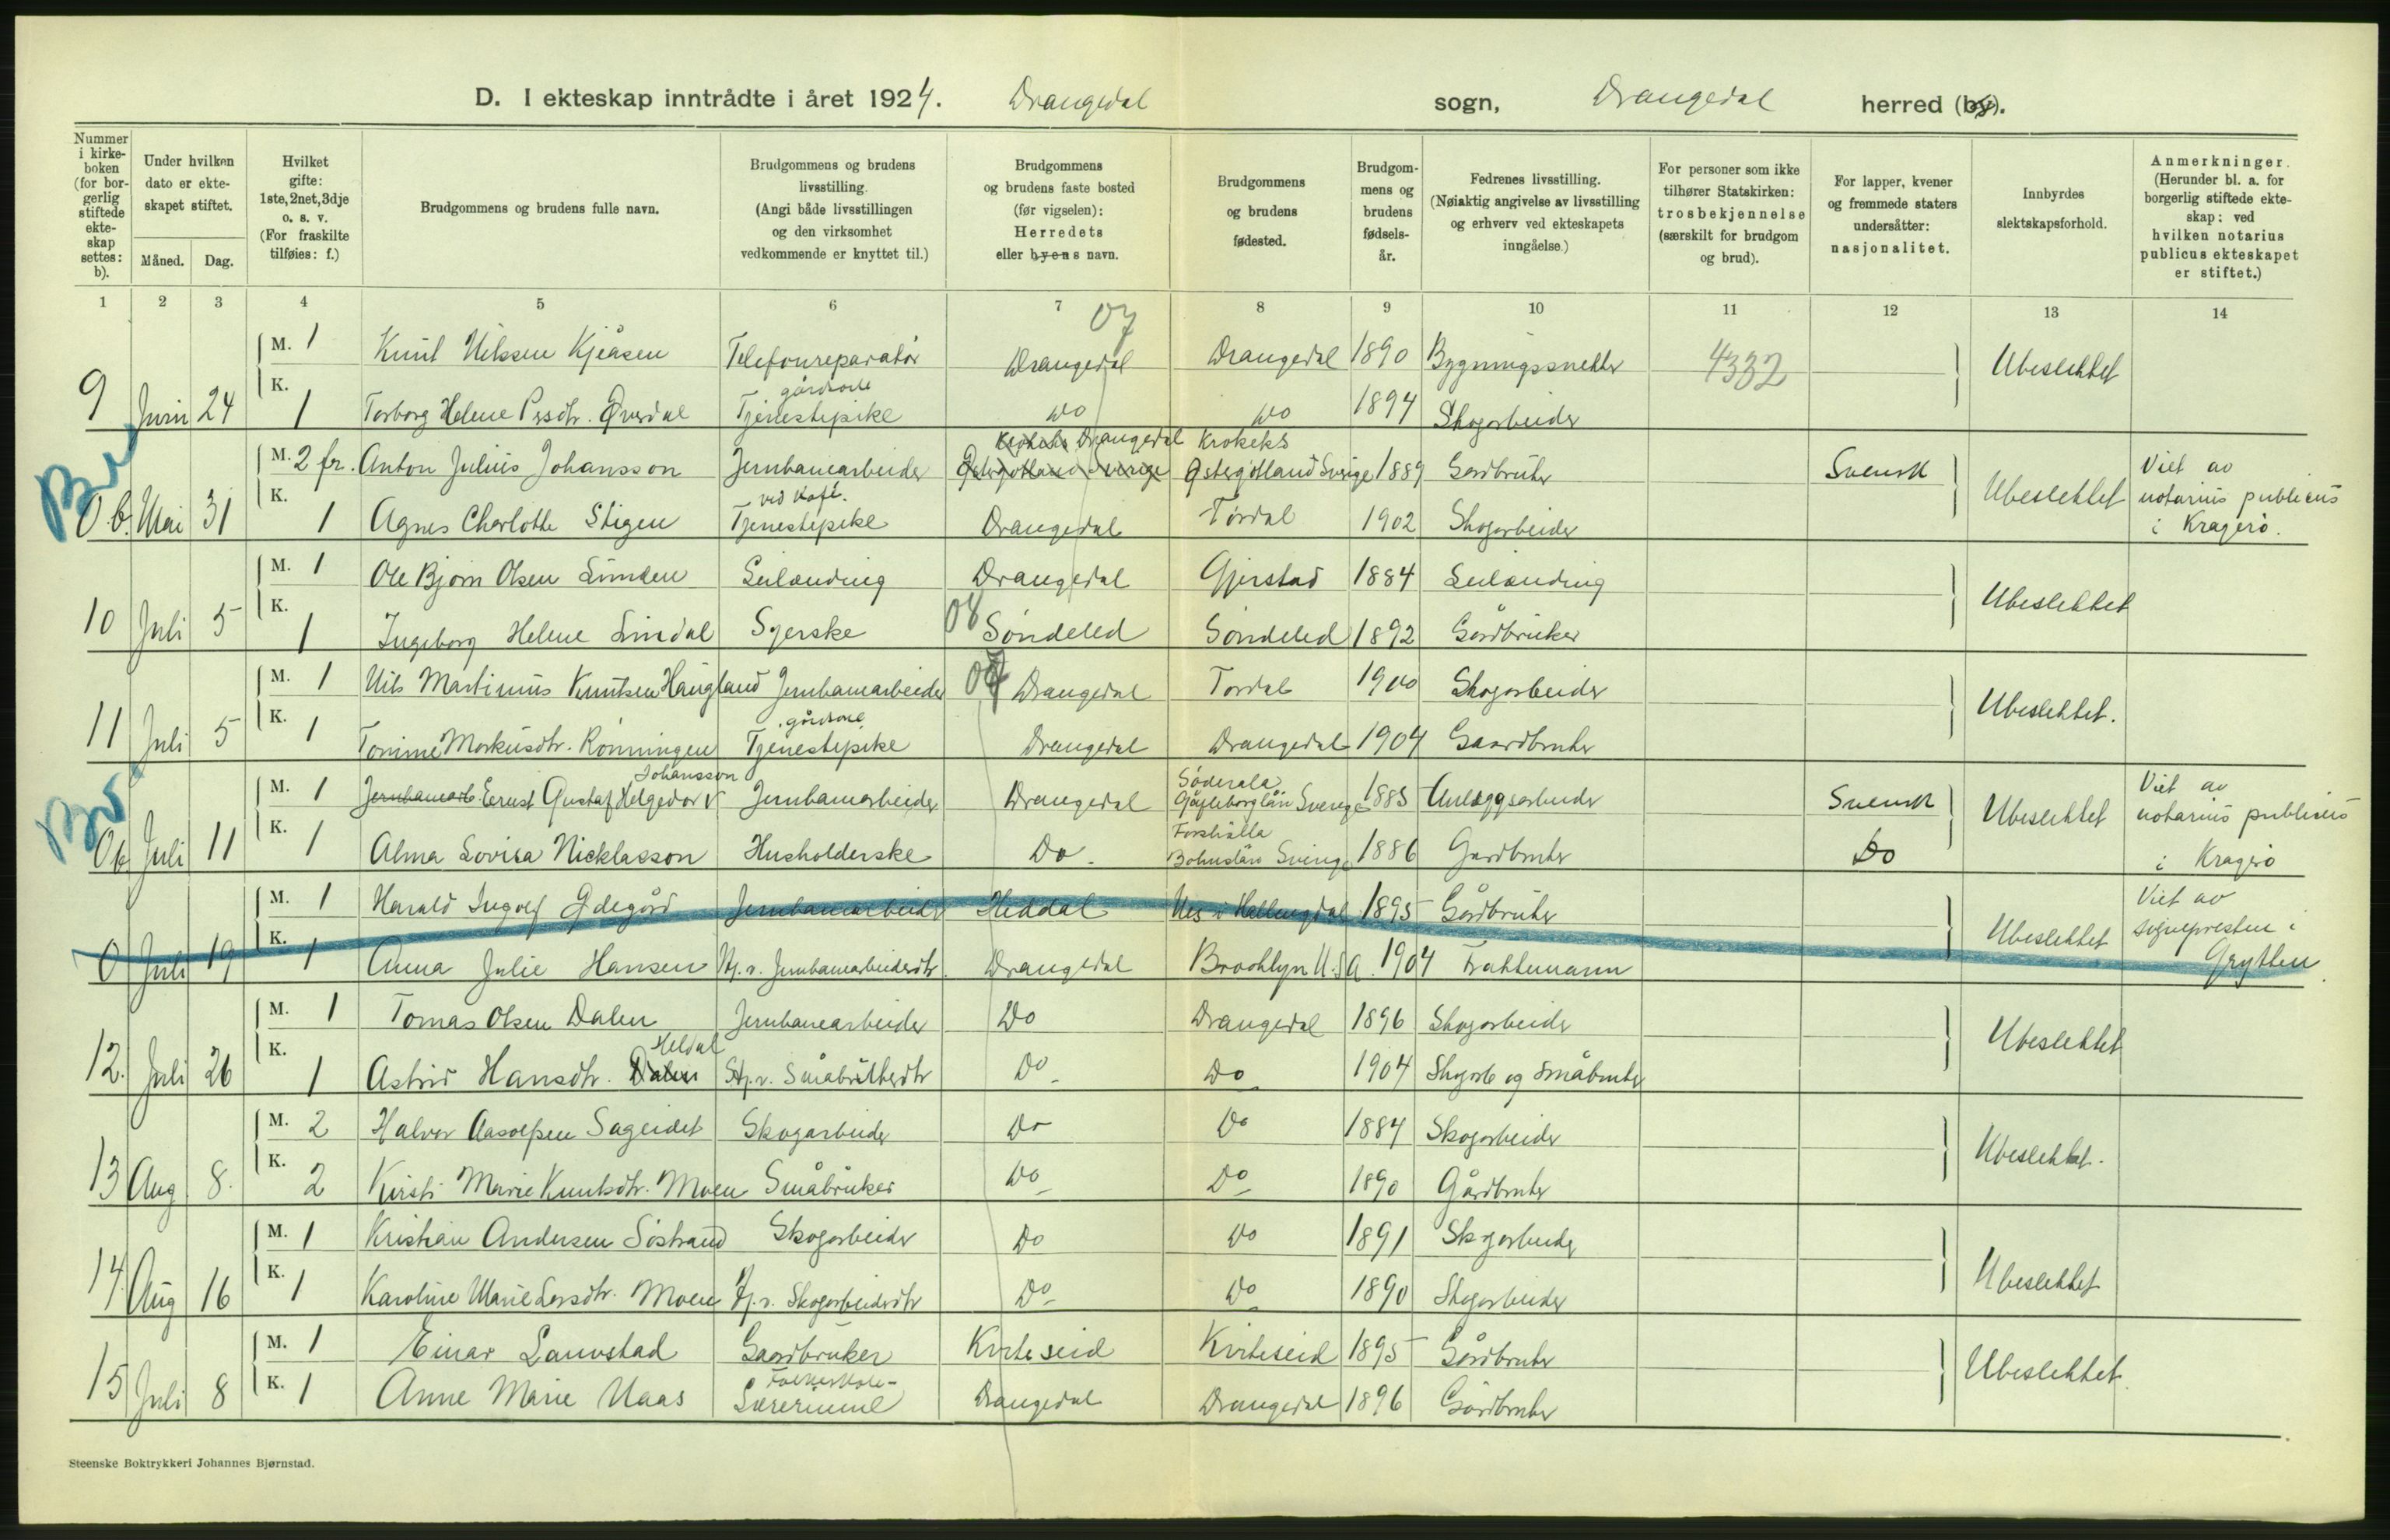 D. I ekteskap inntrådte i året 1924. Drangedal sogn, Drangedal herred (by).
Nummer i kirke-boken (for bor-gerlig stiftede ekte-skap settes: b).
Under hvilken dato er ekte-skapet stiftet.
Måned. Dag.
Hvilket gifte: 1ste, 2net, 3dje o. s. v. (For fraskilte tilføies: f.)
Brudgommens og brudens fulle navn.
Brudgommens og brudens livsstilling. (Angi både livsstillingen og den virksomhet vedkommende er knyttet til.)
Brudgommens og brudens faste bosted (før vigselen): Herredets eller byens navn.
Brudgommens og brudens fødested.
Brudgom-mens og brudens fødsels-år.
Fedrenes livsstilling. (Nøiaktig angivelse av livsstilling og erhverv ved ekteskapets inngåelse.)
For personer som ikke tilhører Statskirken: trosbekjennelse (særskilt for brudgom og brud).
For lapper, kvener og fremmede staters undersåtter: nasjonalitet.
Innbyrdes slektskapsforhold.
Anmerkninger. (Herunder bl. a. for borgerlig stiftede ekte-skap: ved hvilken notarius publicus ekteskapet er stiftet.)
1 2 3 4 5 6 7 8 9 10 11 12 13 14
07
M. 1 Knut Nilssen Kjeåsen Telefonreparatør Drangedal Drangedal 1890 Bygningssnekker 4332 Ubeslektet
gårdsarb
9 Juni 24 K. 1 Torborg Helene Persdtr. Øverdal Tjenestepike do do 1894 Skogarbeider
Krokeks Drangedal Krokeks
M. 2 fr. Anton Julius Johansson Jernbanearbeider Østergotland Sverige Østergotland Sverige 1889 Gardbruker Svensk Ubeslektet Viet av notarius publicus i Kragerø.
ved kafé.
0.b. Mai 31 K. 1 Agnes Charlotte Stigen Tjenestepike Drangedal Tørdal 1902 Skogarbeider
M. 1 Ole Bjørn Olsen Limden Leilænding Drangedal Gjerstad 1884 Leilænding Ubeslektet
10 Juli 5 K. 1 Ingeborg Helene Lindal Syerske 08 Søndeled Søndeled 1892 Gårdbruker
M. 1 Nils Martinius Knutsen Haugland Jernbanearbeider 07 Drangedal Tørdal 1900 Skogarbeider Ubeslektet.
gårdsarb
11 Juli 5 K. 1 Tomine Markusdtr. Rønningen Tjenestepike Drangedal Drangedal 1904 Gaardbruker
Johansson Söderala
M. 1 Jernbanearb. Ernst Gustaf Helgedor Jernbanearbeider Drangedal Gäfleborg län Sverige 1885 Anlæggsarbeider Svensk Ubeslektet Viet av notarius publicus i Kragerø
Forshälla
0b. Juli 11 K. 1 Alma Lovisa Nicklasson Husholderske Do. Bohuslän Sverige 1886 Gardbruker Do
M. 1 Harald Ingolf Ødegård Jernbanearbeider Heddal Nes i Hallingdal 1895 Gårdbruker Ubeslektet Viet av sognepresten i Grytten.
0 Juli 19 K. 1 Anna Julie Hansen Hj.v. Jernbanearbeiderdtr. Drangedal Brooklyn U.S.A. 1904 Traktemann
M. 1 Tomas Olsen Dalen Jernbanearbeider Do Drangedal 1896 Skogarbeider Ubeslektet
Heldal
12. Juli 26 K. 1 Astrid Hansdtr. Dalen Hj.v. Småbrukerdtr Do Do 1904 Skogarb og småbruker
M. 2 Halvor Aasolfsen Sageidet Skogarbeider Do Do 1884 Skogarbeider Ubeslektet.
13 Aug 8. K. 2 Kirsti Marie Knutsdtr. Moen Småbruker Do Do 1890 Gårdbruker
M. 1 Kristian Andersen Sjøstrand Skogarbeider Do Do 1891 Skogarbeider Ubeslektet
14 Aug 16 K. 1 Karoline Marie Larsdtr. Moen Hj.v. Skogarbeiderdtr Do Do 1890 Skogarbeider
M. 1 Einar Launstad Gaardbruker Kviteseid Kviteseid 1895 Gårdbruker Ubeslektet.
Folkeskole-
15 Juli 8 K. 1 Anne Marie Naas Lærerinne Drangedal Drangedal 1896 Gårdbruker
Steenske Boktrykkeri Johannes Bjørnstad.